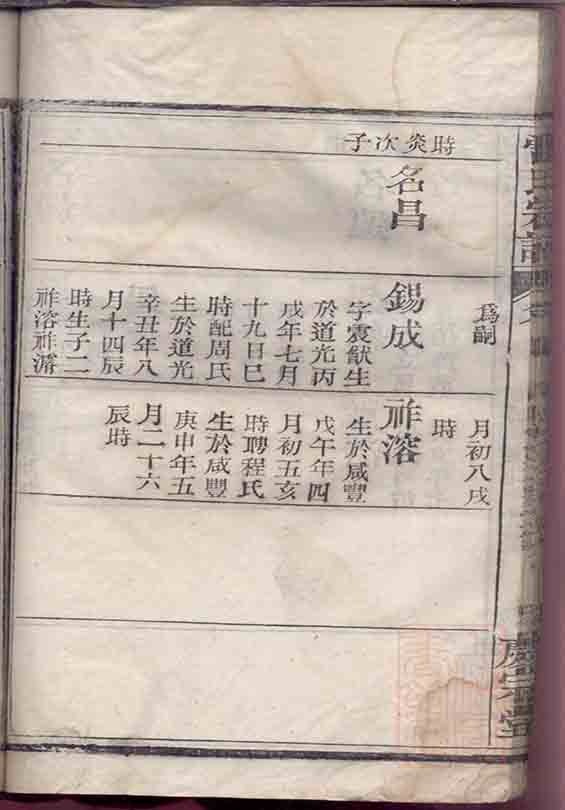 時炎次子
名昌
為嗣
錫成
字震猷生
於道光丙
戌年七月
十九日巳
時配周氏
生於道光
辛丑年八
月十四辰
時生子二
祚溶祚潺
月初八戌
時
祚溶
生於咸豐
戊午年四
月初五亥
時聘程氏
生於咸豐
庚申年五
月二十六
辰時